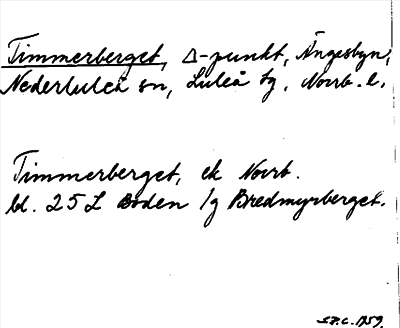 Timmerberget, Δ-punkt, Ängesbyn,
Nederluleå sn, Luleå tg, Norrb. l.
Timmerberget, ek Norrb.
bl. 25 L Boden /g Bredmyrberget.
1959